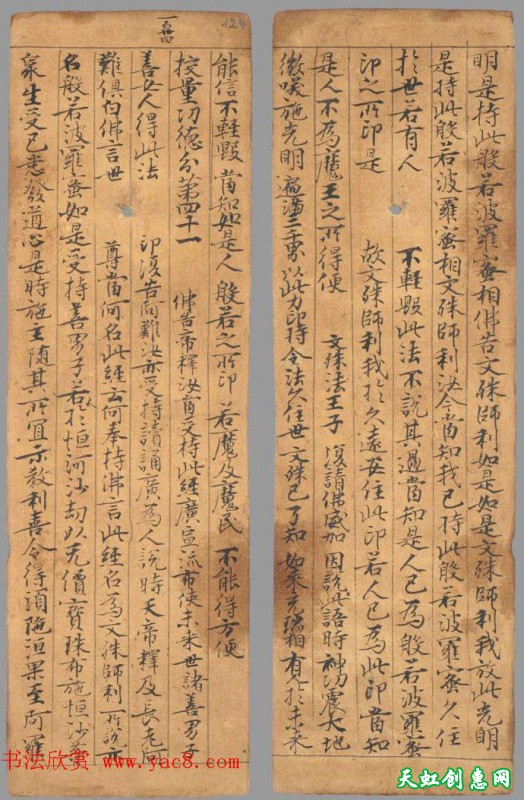 明是持此般若波羅蜜相佛告文殊師利如是如是文殊師利我放此光明
是持此般若波羅蜜相文殊師利汝今當知我已持此般若波羅蜜久住
於世若有人 不輕毀此法不說其過當知是人已為般若波羅蜜
印之所印是 故文殊師利我於久遠安住此印若人已為此印當知
是人不為魔王之所得便 文殊法王子 復請佛威加 因說此語時神功震大地
微咲施光明遍滿三千界以此力印持令法久住世文殊已了知如來光瑞相有於未來
124
能信不輕毀當知如是人般若之所印若魔及魔民 不能得方便
挍量功德分第四十一 佛告帝釋汝當受持此經廣宣流布使未來世諸善男子
善女人得此法 印復告阿難汝亦受持讀誦廣為人說時天帝釋及長老阿
難俱白佛言世 尊當何名此經云何奉持佛言此經名為文殊師利所說亦
名般若波羅蜜如是受持善男子若於恒河沙劫以无價寶珠布施恒沙等
衆生受已悉發道心是時施主隨其所宜示教利喜令得須陁洹果至阿羅
书法欣赏 www.yac8.com
天虹创意网